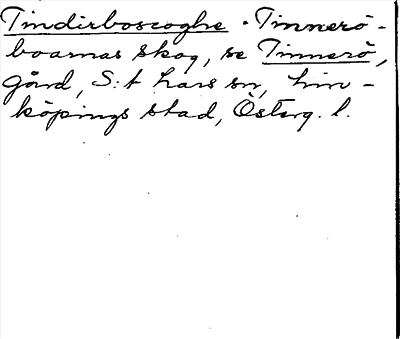 Tindirboscoghe · Tinnerö-
boarnas skog, se Tinnerö,
gård, S:t Lars sn, Lin-
köpings stad, Österg. l.